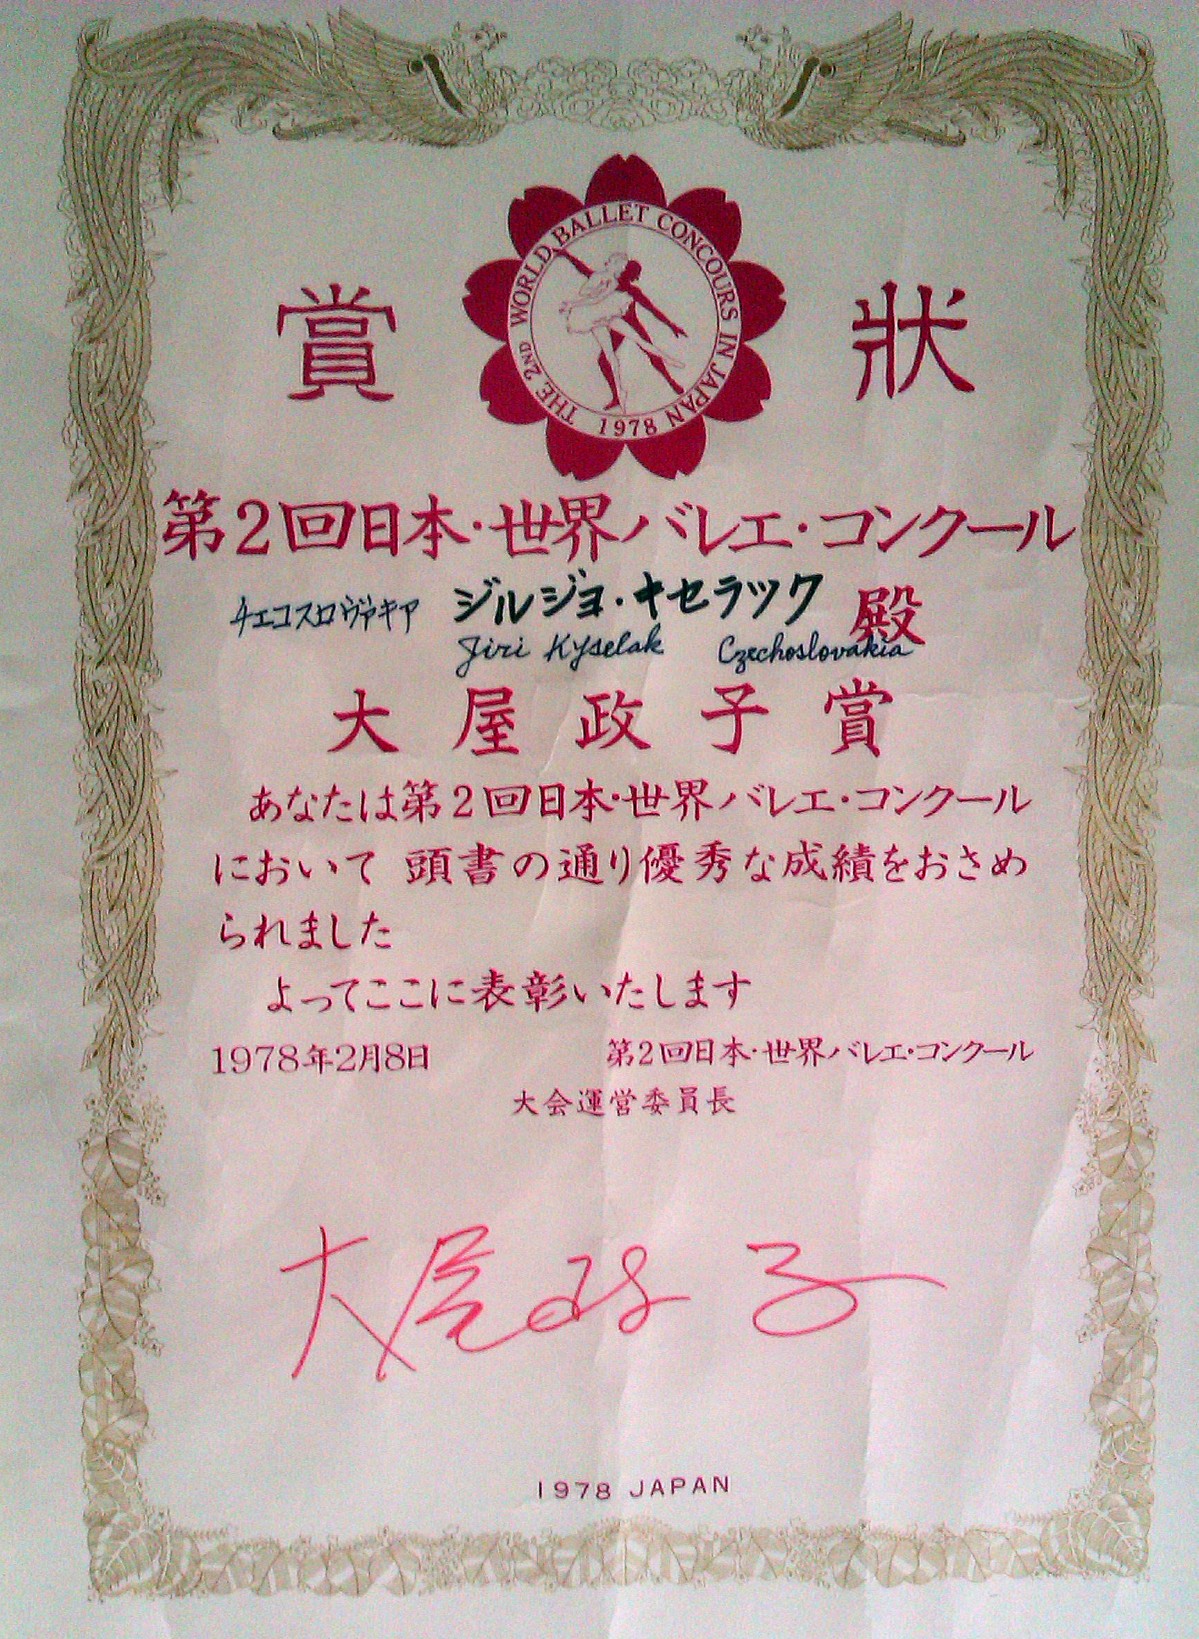 賞
THE 2ND WORLD BALLET CONCOURS IN JAPAN
1978
狀
第2回日本・世界バレエ・コンクール
チェコスロヴァキア ジルジョ・キセラック 殿
Jiri Kyselak Czechoslovakia
大屋政子賞
あなたは第2回日本・世界バレエ・コンクール
において 頭書の通り優秀な成績をおさめ
られました
よってここに表彰いたします
1978年2月8日 第2回日本・世界バレエ・コンクール
大会運営委員長
大屋政子
1978 JAPAN